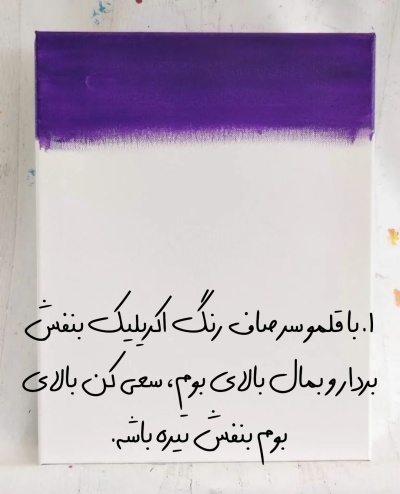 ۱. با قلمو سر صاف رنگ اکریلیک بنفش
بردار و بمال بالای بوم، سعی کن بالای
بوم بنفش تیره باشه.